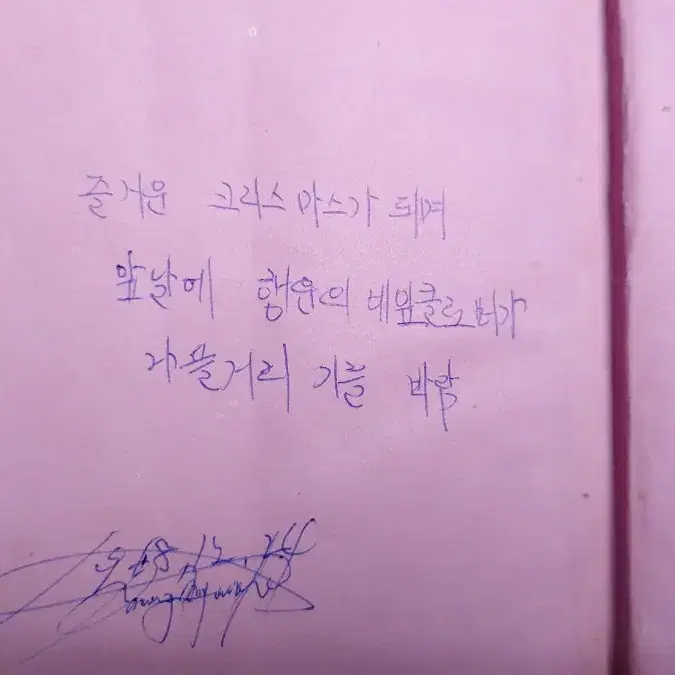 즐거운 크리스마스가 되며
앞날에 행운의 네잎클로버가
기를 바람
68.12.24